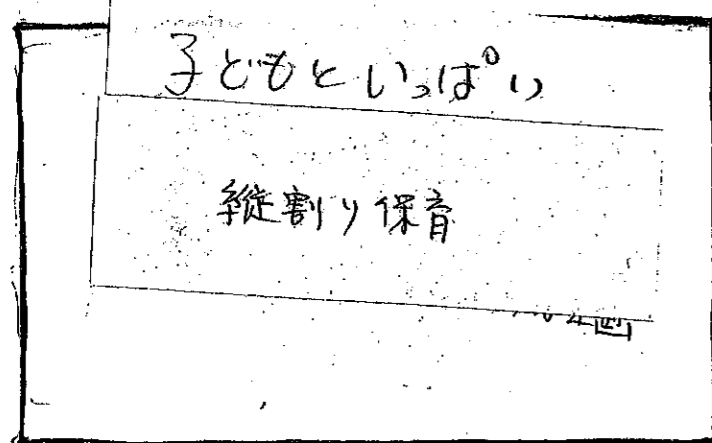 子どもといっぱい
縦割り保育